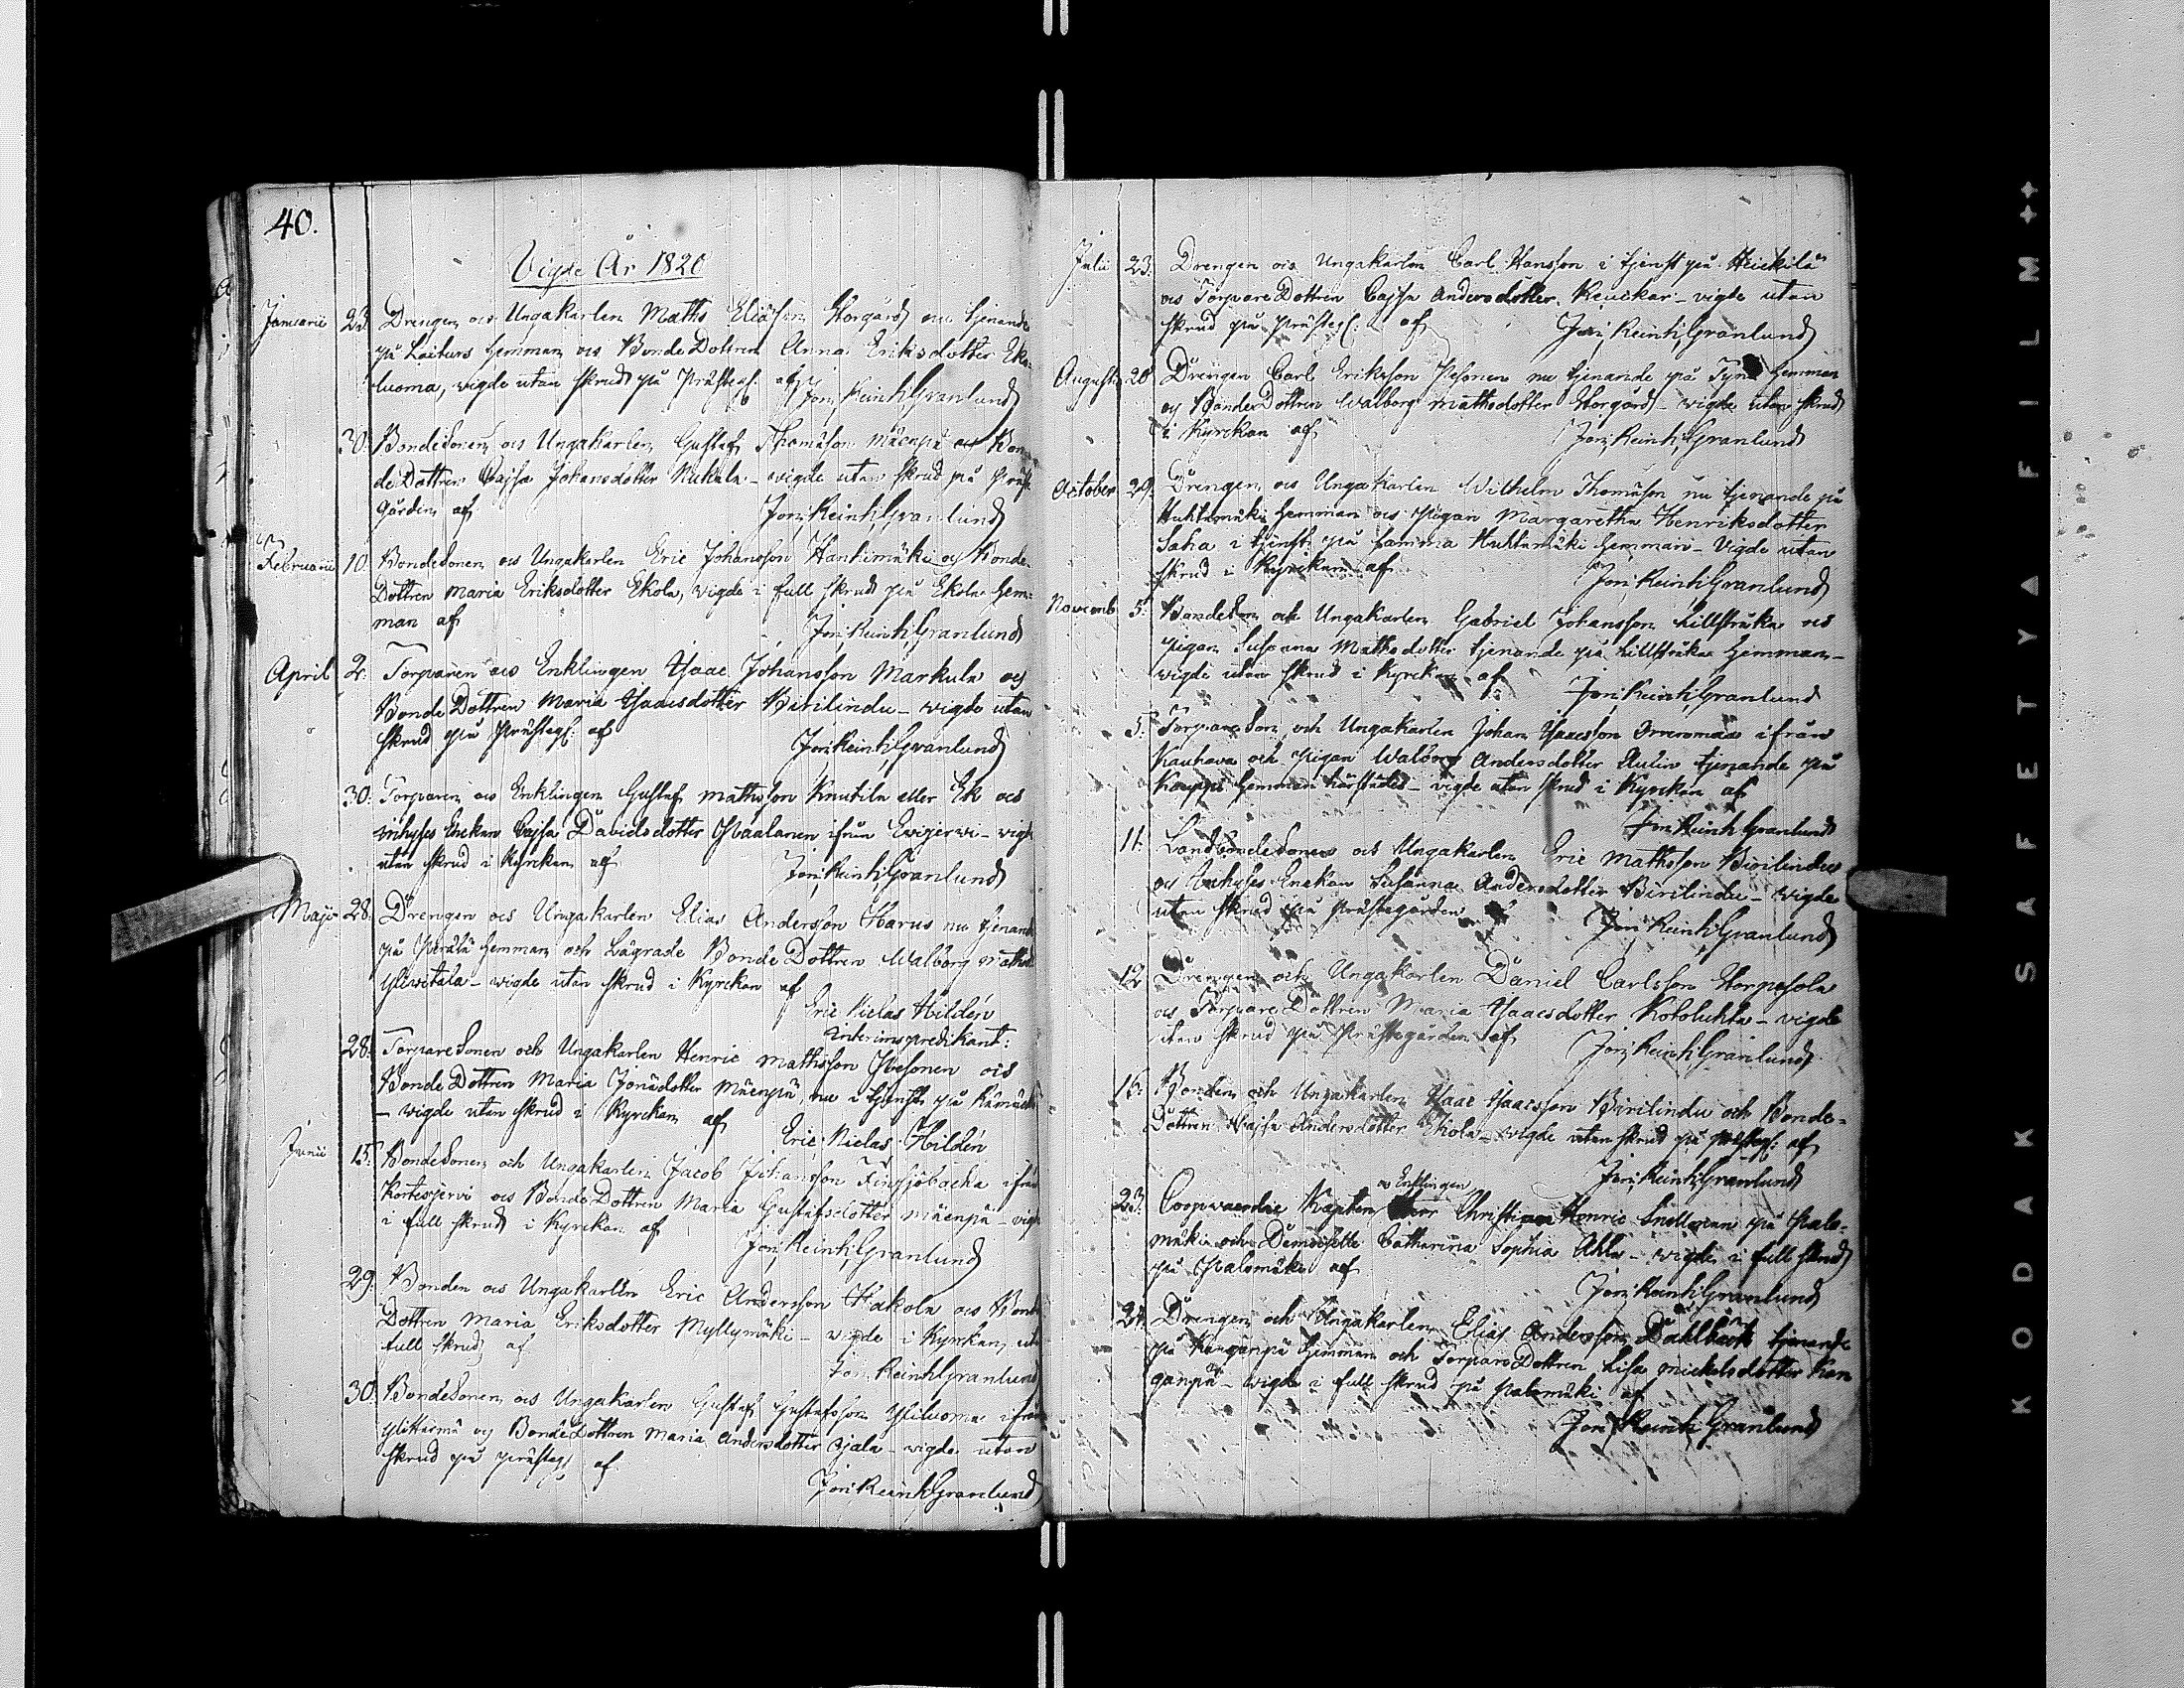 40.
Vigde År 1820
Januarii 23. Drengen och Ungakarlen Matts Eliasson Storgård nu tjenande
på Laiturs Hemman och Bonde Dottren Anna Eriksdotter Eko-
luoma, vigde utan skrud på Prästeg: af Jon: Reinh: Granlund
30. Bondesonen och Ungakarlen Gustaf Thomasson Mäenpä och Bon-
de Dottren Cajsa Johansdotter Nukala - vigde utan skrud på Präst
Gården af Jon: Reinh: Granlund
Februarii 10. Bondesonen och Ungakarlen Eric Johansson Hantimäki och Bonde
Dottren Maria Eriksdotter Ekola, vigde i full skrud på Ekola Hem-
man af Jon: Reinh: Granlund
April 2. Torparen och Enklingen Isaac Johansson Markula och
Bonde Dottren Maria Isaacsdotter Birilindu - vigde utan
skrud på Prästeg: af Jon: Reinh: Granlund
30. Torparen och Enklingen Gustaf Mathsson Knutila eller Ek och
Inhyses Enckan Cajsa Davidsdotter ifrån Evijervi - vigde
utan skrud i Kyrckan af Jon: Reinh: Granlund
Maji 28. Drengen och Ungakarlen Elias Andersson Harus nu tjenande
på Perälä Hemman och Lägrade Bonde Dottren Walborg Mathsd
Yliwitala - vigde utan skrud i Kyrckan af
Eric Niclas Hildén
interimspredikant:
28. Torparesonen och Ungakarlen Henric Mathsson Pesonen och
Bonde Dottren Maria Jonædotter Mäenpä, nu i tjenst på
- vigde utan skrud i Kyrckan af Eric Niclas Hildén
Junii 15. Bondesonen och Ungakarlen Jacob Johansson Fingjöbacka ifrån
Kortesjervi och Bonde Dottren Maria Gustafsdotter Mäenpä - vigde
i full skrud i Kyrckan af Jon: Reinh: Granlund
29. Bonden och Ungakarlen Eric Andersson Hakola och Bonde
Dottren Maria Eriksdotter Myllymäki - vigde i Kyrckan uti
full skrud af Jon: Reinh: Granlund
30. Bondesonen och Ungakarlen Gustaf Gustafsson Yliluoma ifrån
Ylihärmä och Bonde Dottren Maria Andersdotter Ojala - vigde utan
skrud på Prästeg: af Jon: Reinh: Granlund
Julii 23. Drengen och Ungakarlen Carl Hansson i tjenst på Heickilä
och Torpare Dottren Cajsa Andersdotter - vigde utan
skrud på Prästeg: af Jon: Reinh: Granlund
Augusti 20 Drengen Carl Eriksson Pesonen nu tjenande på Hemman
och Bonde Dottren Walborg Mathsdotter Storgård - vigde utan skrud
i Kyrckan af Jon: Reinh: Granlund
October 29. Drengen och Ungakarlen Wilhelm Thomasson nu tjenande på
Huhtamäki Hemman och Pigan Margaretha Henriksdotter
Saha i tjenst på samma Huhtamäki Hemman - Vigde utan
skrud i Kyrckan af Jon: Reinh: Granlund
Novemb 5. Bondeson och Ungakarlen Gabriel Johansson Lillstråka och
Pigan Susanna Mathsdotter tjenande på Lillstråka Hemman -
vigde utan skrud i Kyrckan af Jon: Reinh: Granlund
5. Torpare Son och Ungakarlen Johan Isaacsson ifrån
Kauhava och Pigan Walborg Andersdotter Aulin tjenande på
Hemman härstädes - vigde utan skrud i Kyrckan af
Jon: Reinh: Granlund
11. Landbondesonen och Ungakarlen Eric Mathsson Birilindu
och Inhyses Enckan Susanna Andersdotter Birilindu - vigde
utan skrud på Prästegården af Jon: Reinh: Granlund
12. Drengen och Ungakarlen Daniel Carlsson
och Torpare Dottren Maria Isaacsdotter Kotoluhta - vigde
utan skrud på Prästegården af Jon: Reinh: Granlund
15. Bonden och Ungakarlen Isaac Isaacsson Birilindu och Bonde-
Dottren Cajsa Andersdotter Ekola - vigde utan skrud på Prästeg: af
Jon: Reinh: Granlund
och Enklingen
23. Coopvaerdie Kapten Herr Christian Henric Snellman på Palo-
mäki och Demoiselle Catharina Sophia Ahla - vigde i full skrud
på Palomäki af Jon: Reinh: Granlund
24. Drengen och Ungakarlen Elias Andersson Dahlback tjenande
på Kanganpä Hemman och Torpare Dottren Lisa Mickelsdotter Kan
ganpä - vigde i full skrud på Palomäki af
Jon: Reinh: Granlund
KODAK SAFETY FILM